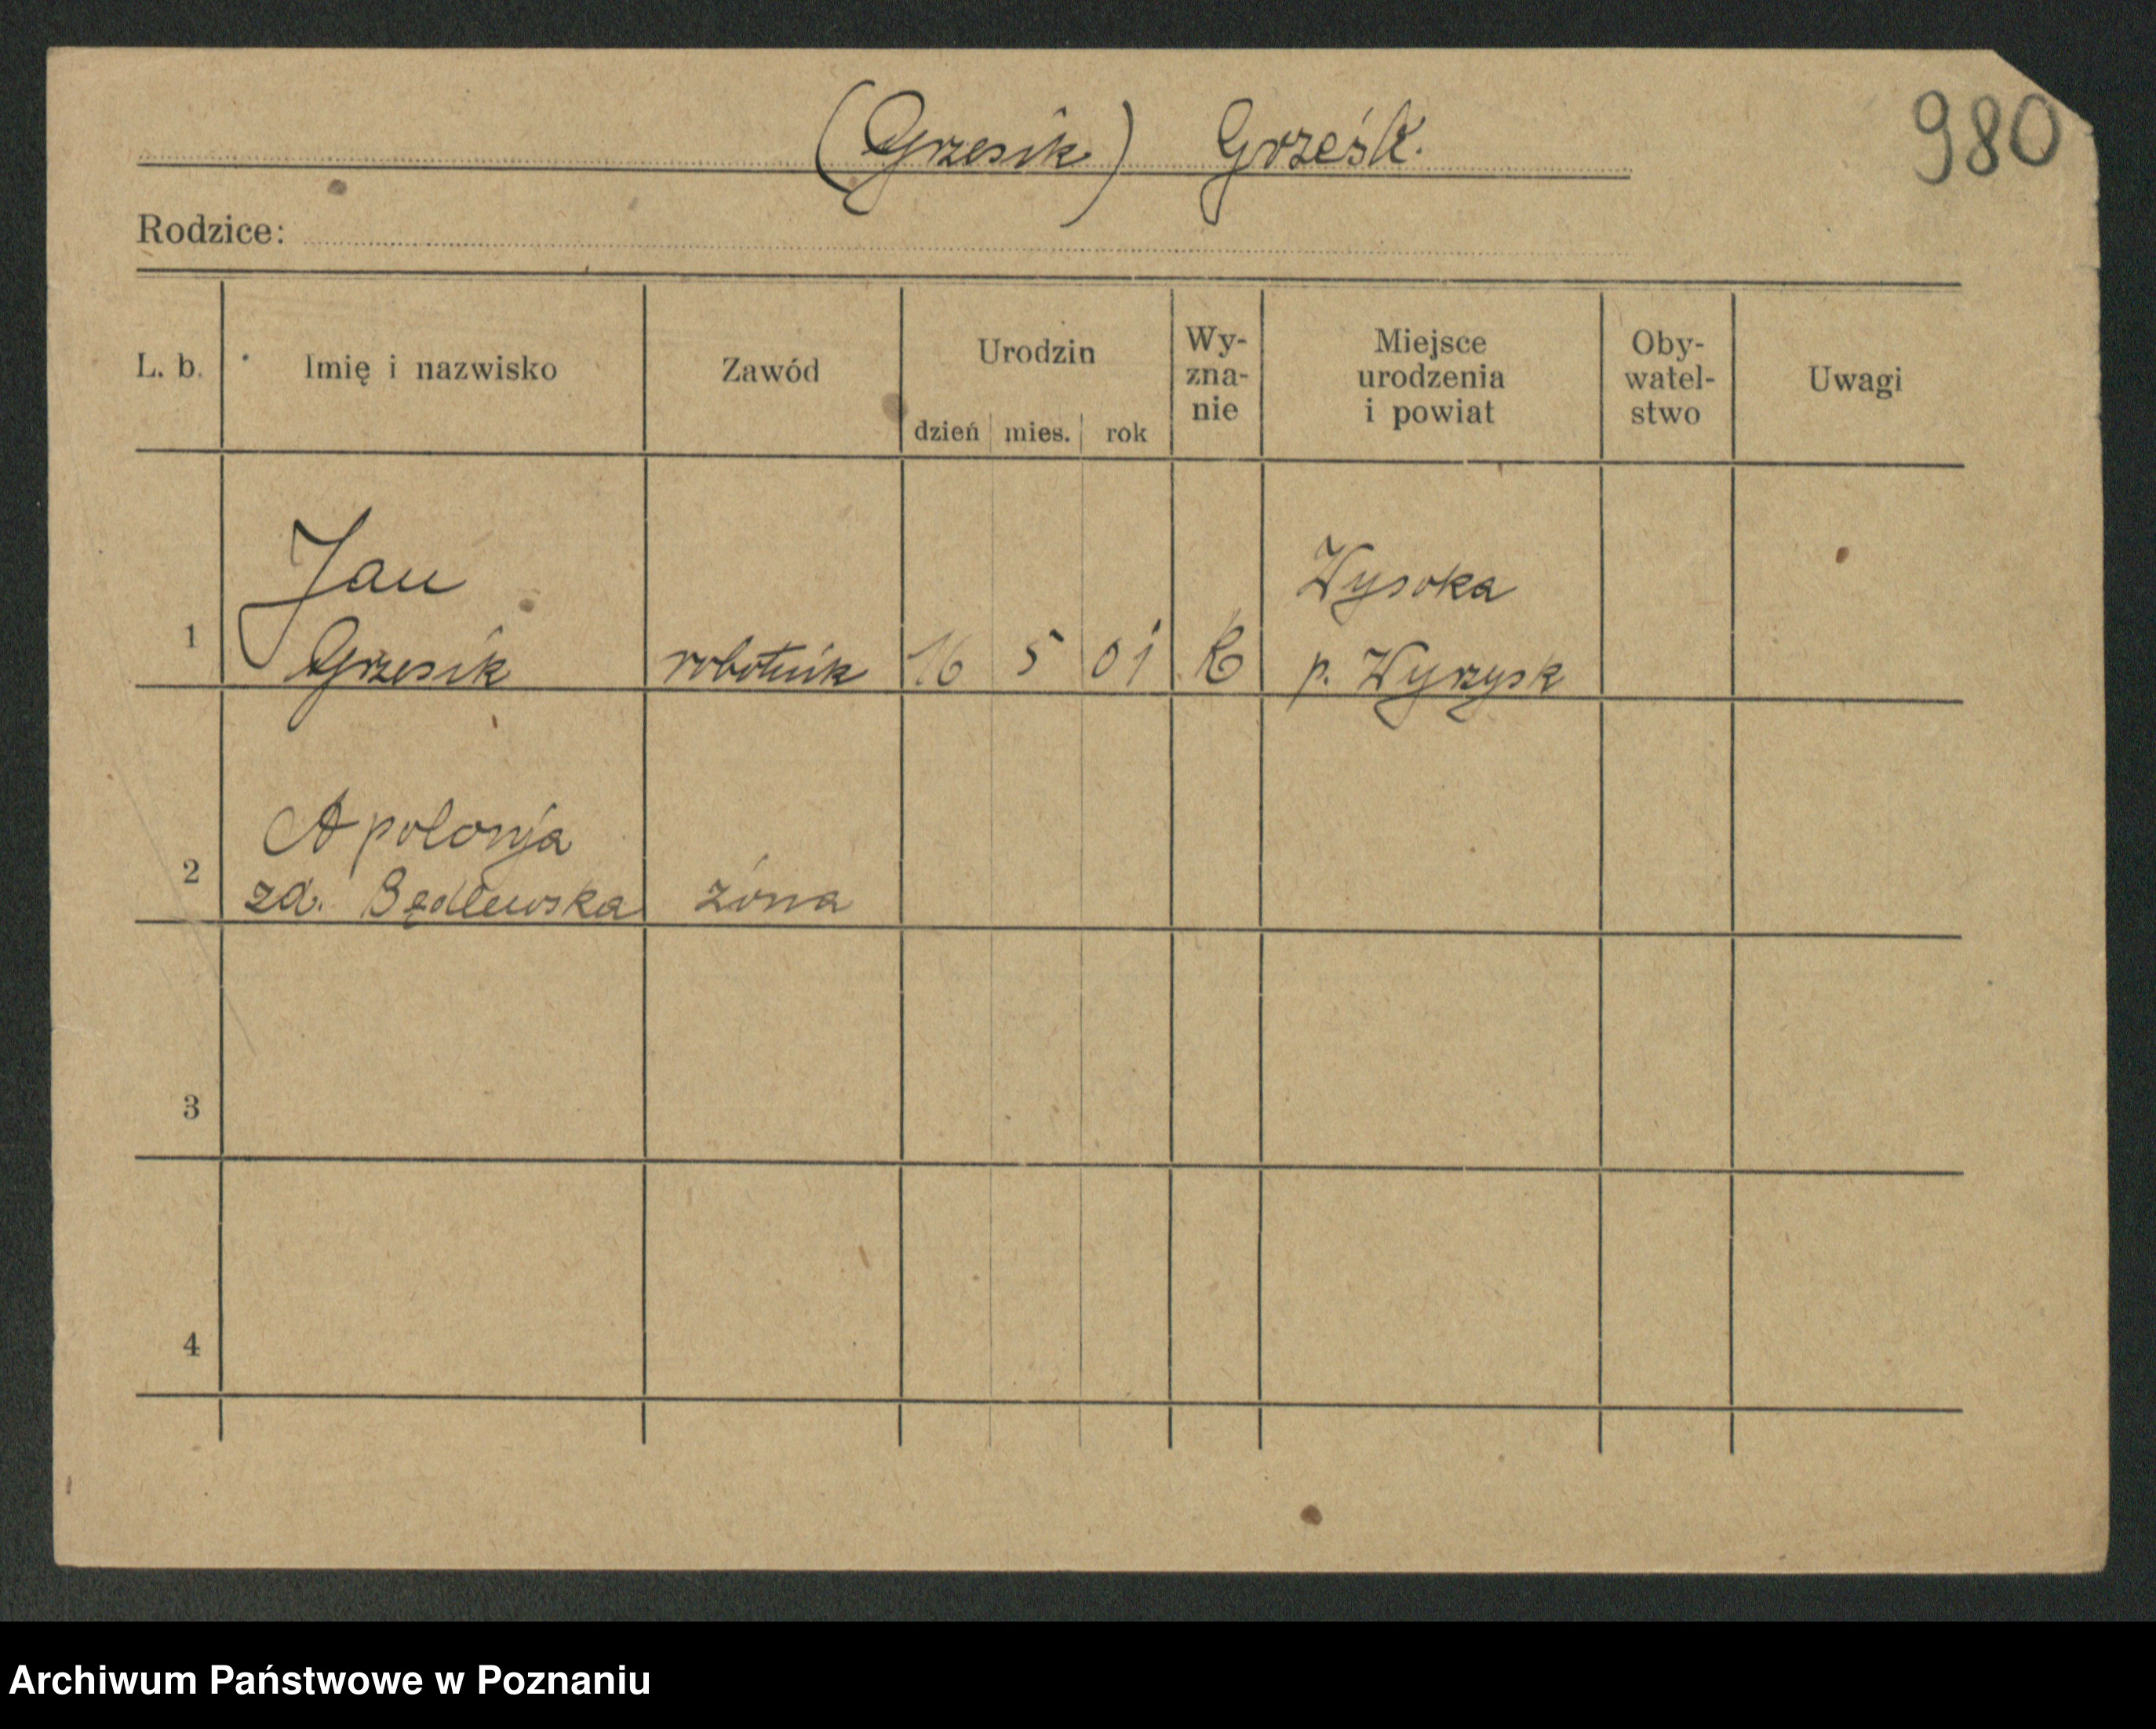 (Grzesik) Grześk.
980
Rodzice:
L. b.
Imię i nazwisko
Zawód
Urodzin
dzień mies. rok
Wy-
zna-
nie
Miejsce
urodzenia
i powiat
Oby-
watel-
stwo
Uwagi
1
Jan
Grzesik
robotnik
16 5 01
K
Wysoka
p. Wyrzysk
2
Apolonja
zd. Będlewska
żona
3
4
Archiwum Państwowe w Poznaniu